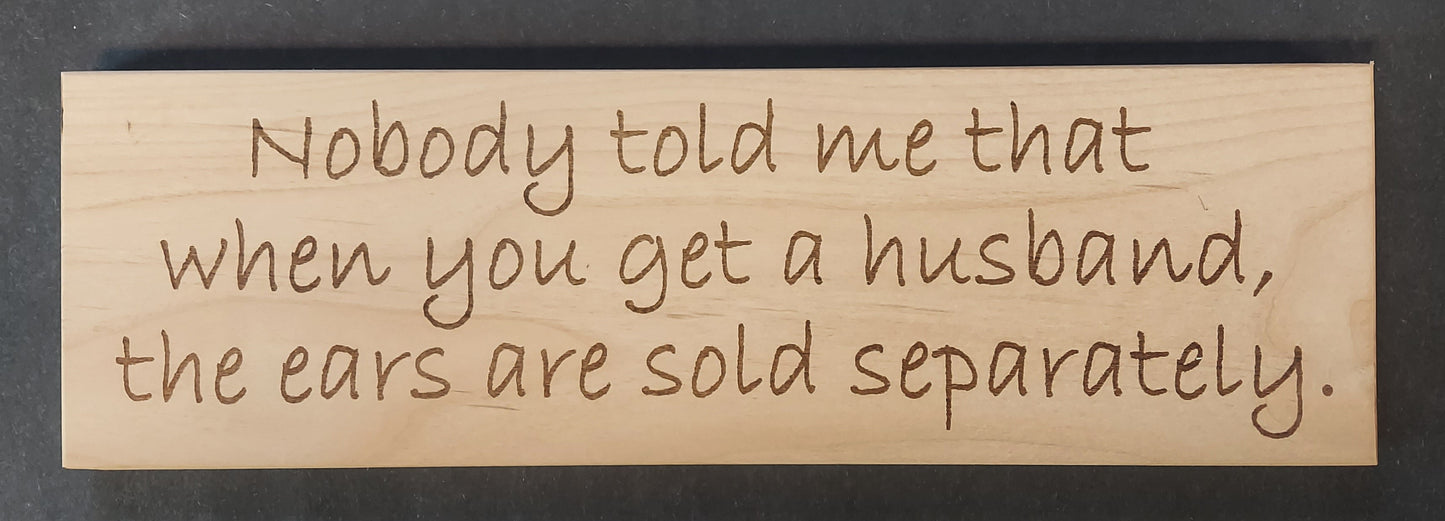 Nobody told me that
when you get a husband,
the ears are sold separately.